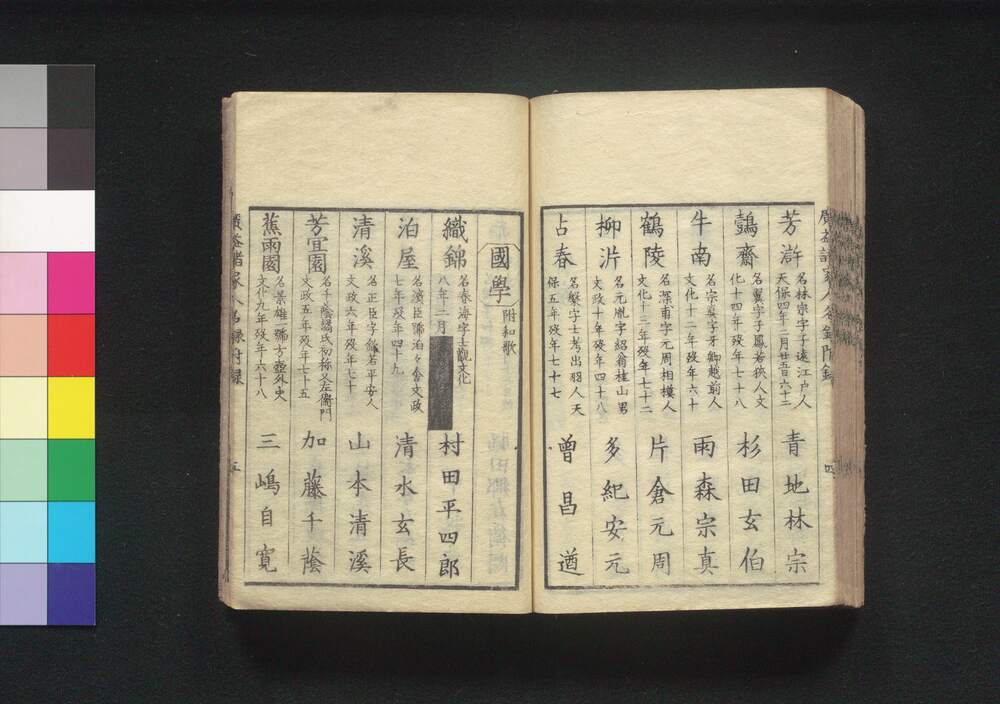 芳滸 名林宗字子遠江戸人天保四年二月廿一日六十二 青地林宗
鷧齋 名翼字子鳳若狹人文化十四年歿年七十八 杉田玄伯
牛南 名宗真字牙卿越前人文化十二年歿年六十 雨森宗真
鶴陵 名深甫字元周相摸人文化十三年歿年七十二 片倉元周
柳沜 名元胤字紹翁桂山男文政十年歿年四十八 多紀安元
占春 名槃字士考出羽人天保五年歿年七十七 曾昌遒
四
國學 附和歌
織錦 名春海字士觀文化八年二月 村田平四郎
泊屋 名濱臣號泊々舍文政七年歿年四十九 清水玄長
清溪 名正臣字 若平安人文政六年歿年七十 山本清溪
芳宜園 名千蔭橘氏初称又左衞門文政五年歿年七十五 加藤千蔭
蕉雨園 名景雄一號方壺外史文化九年歿年六十八 三嶋自寛
廣益諸家人名録附録
五